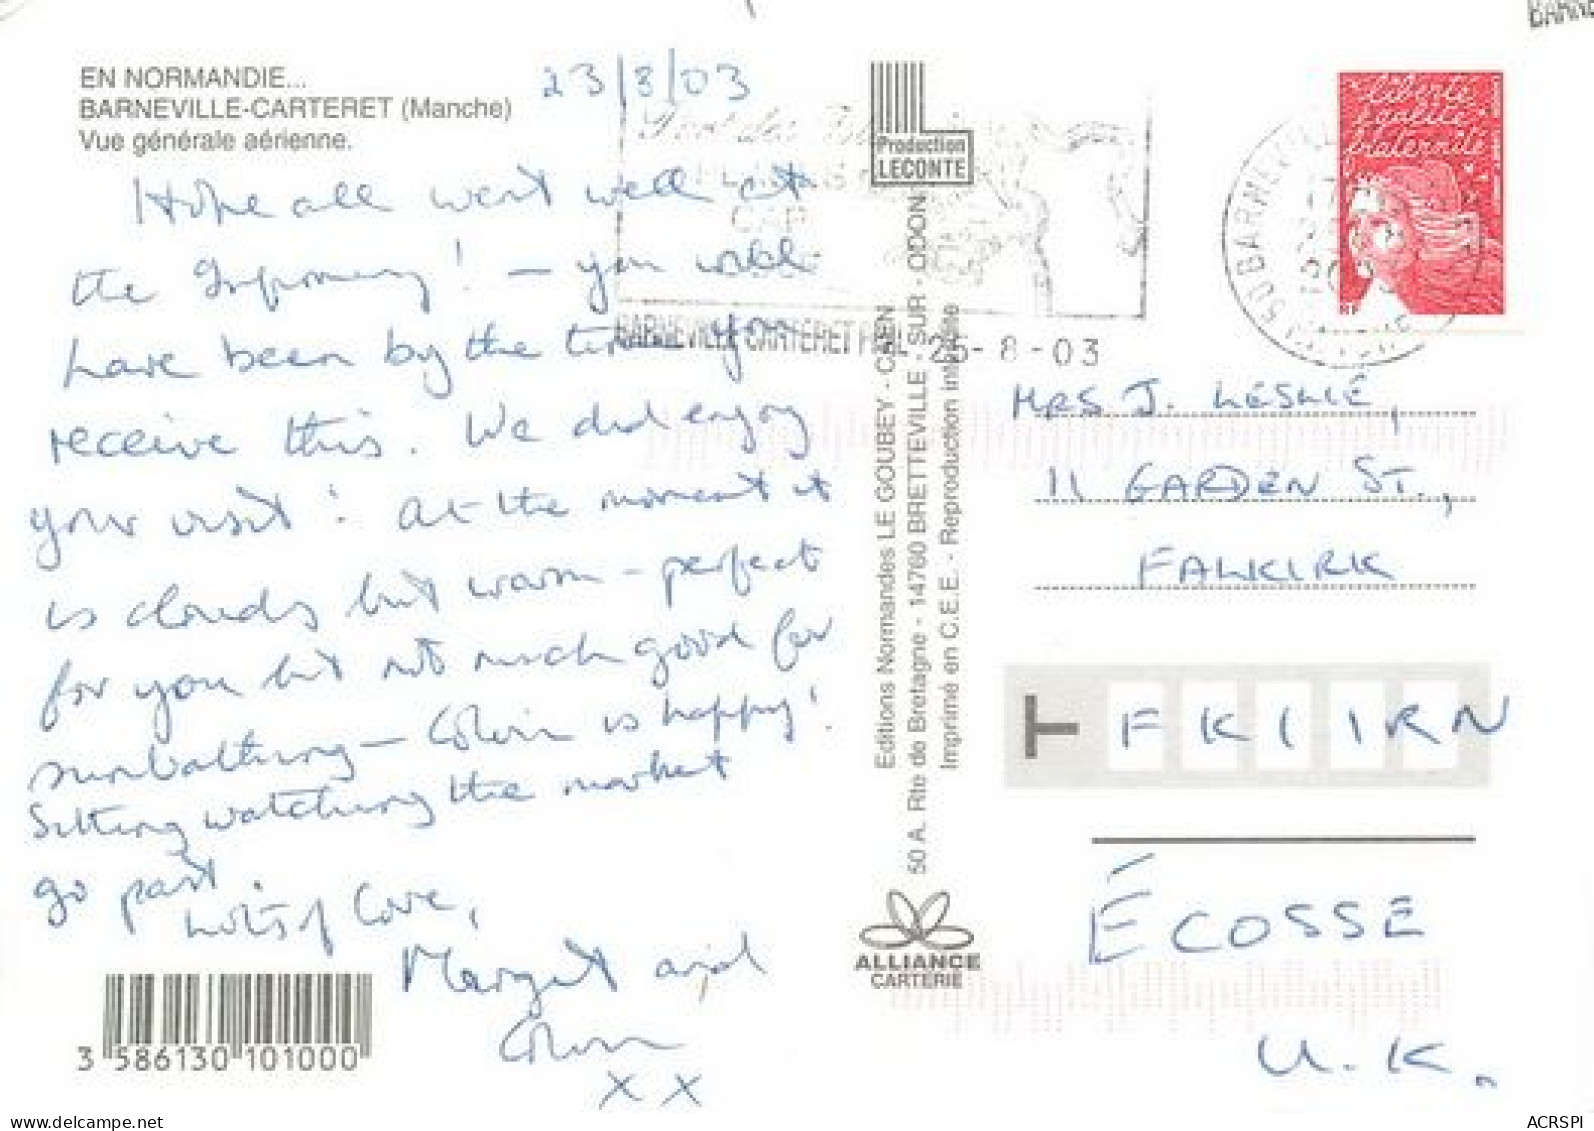 EN NORMANDIE...
BARNEVILLE-CARTERET (Manche)
Vue générale aérienne.
23/8/03
Hope all went well at
the Infirmary! - you will
have been by the time you
receive this. We did enjoy
your visit! At the moment it
is cloudy but warm - perfect
for you but not much good for
sunbathing - Colin is happy!
Sitting watching the market
go past.
Lots of Love,
Margaret and
Colin
X X
3 586130 101000
Production
LECONTE
Editions Normandes LE GOUBEY - CAEN
50 A. Rte de Bretagne - 14760 BRETTEVILLE - SUR - ODON
Imprimé en C.E.E. - Reproduction interdite
ALLIANCE
CARTERIE
BARNEVILLE CARTERET PAL 26-8-03
Liberté
égalité
fraternité
RF
50 BARNEVILLE
MRS J. LESLIE,
11 GARDEN ST.,
FALKIRK
T FK1 1RN
ÉCOSSE
U.K.
www.delcampe.net
ACRSPI